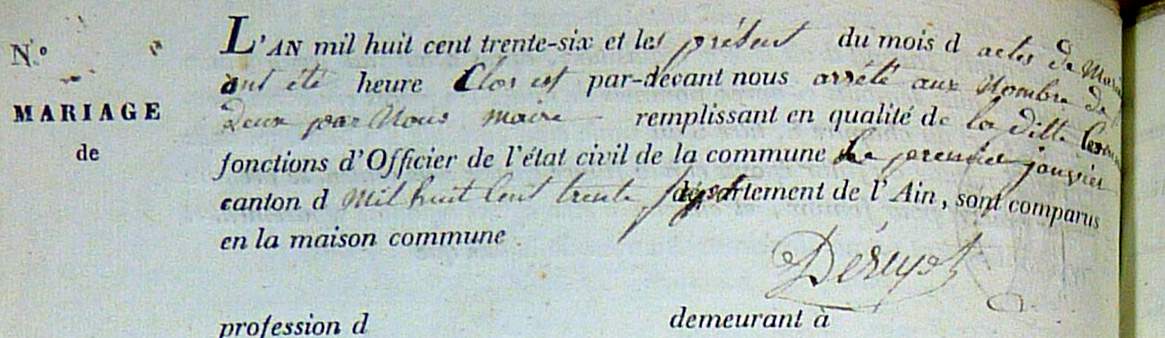 N.°
MARIAGE
de
L'AN mil huit cent trente-six et les présent du mois d actes de Mari
ont été heure Clos et par-devant nous arrété aux Nombre de
Deux par Nous maire remplissant en qualité de la ditte Commune
fonctions d'Officier de l'état civil de la commune Le premier janvier
canton d Mil huit Cent trente sept département de l'Ain, sont comparus
en la maison commune
profession d demeurant à